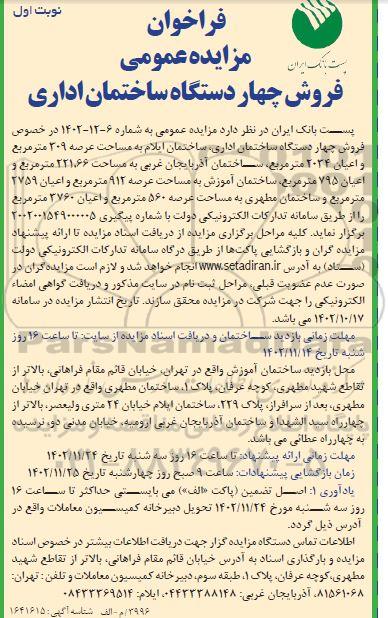 نوبت اول
فراخوان
مزایده عمومی
فروش چهار دستگاه ساختمان اداری
پست بانک ایران
پست بانک ایران در نظر دارد مزایده عمومی به شماره ۶-۱۲-۱۴۰۲ در خصوص
فروش چهار دستگاه ساختمان اداری، ساختمان ایلام به مساحت عرصه ۳۰۹ مترمربع
و اعیان ۲۰۳۴ مترمربع، ساختمان آذربایجان غربی به مساحت ۲۲۱،۶۶ مترمربع و
اعیان ۷۹۵ مترمربع، ساختمان آموزش به مساحت عرصه ۹۱۲ مترمربع و اعیان ۲۷۵۹
مترمربع و ساختمان مطهری به مساحت عرصه ۵۶۰ مترمربع و اعیان ۳۷۶۰ مترمربع
را از طریق سامانه تدارکات الکترونیکی دولت با شماره پیگیری ۲۰۰۲۰۰۱۵۴۹۰۰۰۰۰۵
برگزار نماید. کلیه مراحل برگزاری مزایده از دریافت اسناد مزایده تا ارائه پیشنهاد
مزایده گران و بازگشایی پاکت‌ها از طریق درگاه سامانه تدارکات الکترونیکی دولت
(ستاد) به آدرس www.setadiran.ir انجام خواهد شد و لازم است مزایده‌گران در
صورت عدم عضویت قبلی، مراحل ثبت نام در سایت مذکور و دریافت گواهی امضاء
الکترونیکی را جهت شرکت در مزایده محقق سازند. تاریخ انتشار مزایده در سامانه
۱۴۰۲/۱۰/۱۷ می باشد.
مهلت زمانی بازدید ساختمان و دریافت اسناد مزایده از سایت: تا ساعت ۱۶ روز
شنبه تاریخ ۱۴۰۲/۱۱/۱۴
محل بازدید ساختمان آموزش واقع در تهران، خیابان قائم مقام فراهانی، بالاتر از
تقاطع شهید مطهری، کوچه عرفان، پلاک ۱، ساختمان مطهری واقع در تهران خیابان
مطهری، بعد از سرافراز، پلاک ۲۲۹، ساختمان ایلام خیابان ۲۴ متری ولیعصر، بالاتر از
چهارراه سید الشهدا و ساختمان آذربایجان غربی ارومیه، خیابان مدنی دو، نرسیده
به چهارراه عطائی می باشد.
مهلت زمانی ارائه پیشنهاد: تا ساعت ۱۶ روز سه شنبه تاریخ ۱۴۰۲/۱۱/۲۴
زمان بازگشایی پیشنهادات: ساعت ۹ صبح روز چهارشنبه تاریخ ۱۴۰۲/۱۱/۲۵
یادآوری ۱: اصل تضمین (پاکت «الف») می بایستی حداکثر تا ساعت ۱۶
روز سه شنبه مورخ ۱۴۰۲/۱۱/۲۴ تحویل دبیرخانه کمیسیون معاملات واقع در
آدرس ذیل گردد.
اطلاعات تماس دستگاه مزایده گزار جهت دریافت اطلاعات بیشتر در خصوص اسناد
مزایده و بارگذاری اسناد به آدرس خیابان قائم مقام فراهانی، بالاتر از تقاطع شهید
مطهری، کوچه عرفان، پلاک ۱، طبقه سوم، دبیرخانه کمیسیون معاملات و تلفن: تهران:
۸۱۵۶۱۰۶۸، آذربایجان غربی: ۰۴۴۳۳۳۸۸۱۴۸، ایلام: ۰۸۴۳۳۳۶۹۵۱۴
۳۹۹۶/م-الف شناسه آگهی: ۱۶۴۱۶۱۵